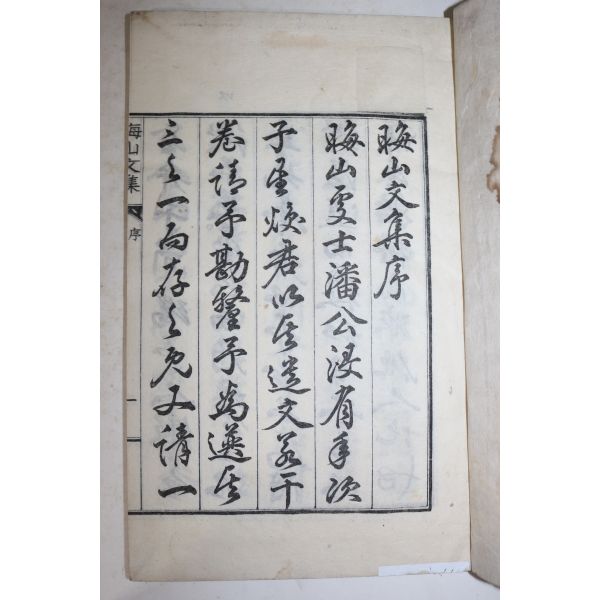 晦山文集序
晦山處士潘公沒有年次
子聖煥君以其遺文若干
卷請予勘釐予為選其
三之一而存之旣又請一
晦山文集 序 一